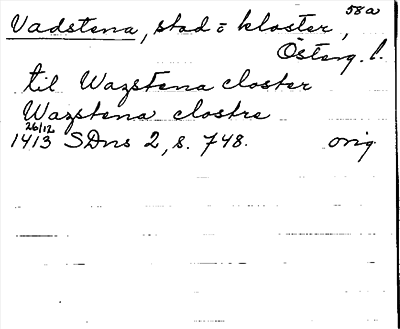 58a
Vadstena, stad o kloster,
Österg. l.
til Wazstena closter
Wazstena clostre
26/12
1413 SDns 2, s. 748. orig